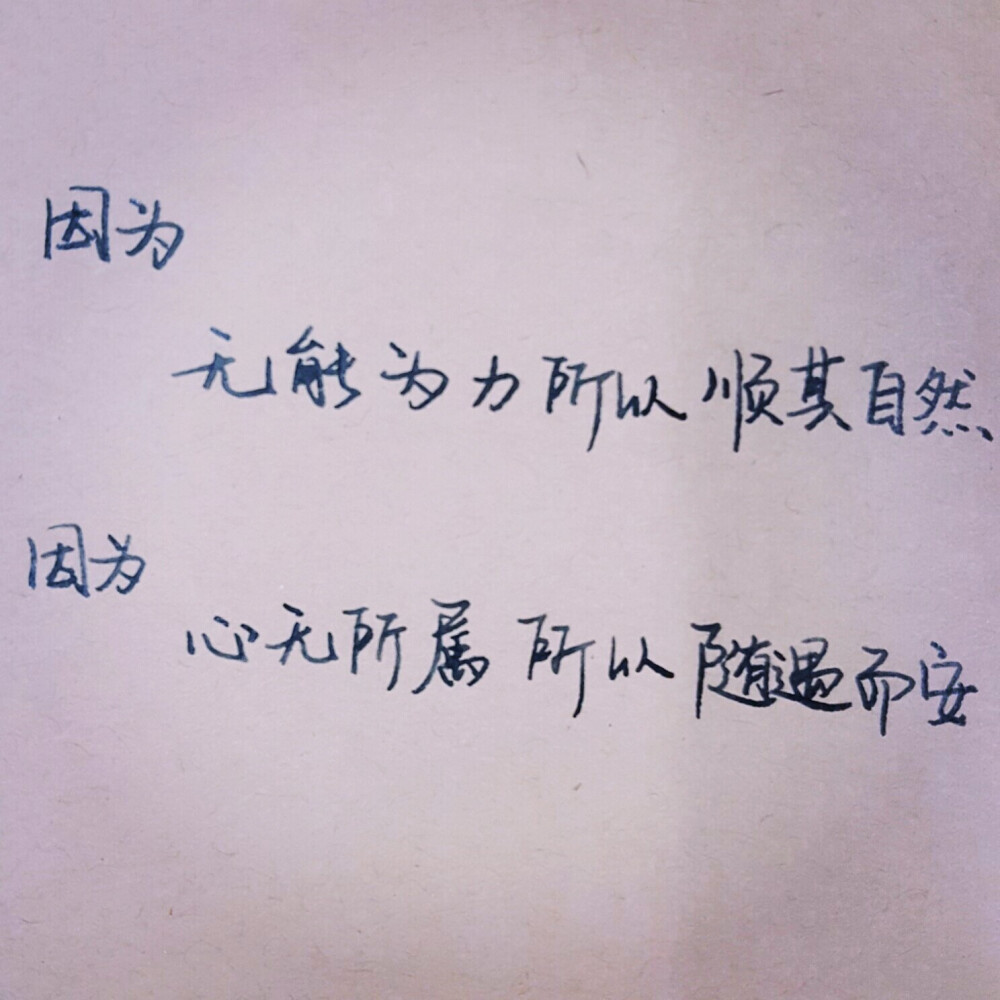 因为
无能为力所以顺其自然
因为
心无所属所以随遇而安